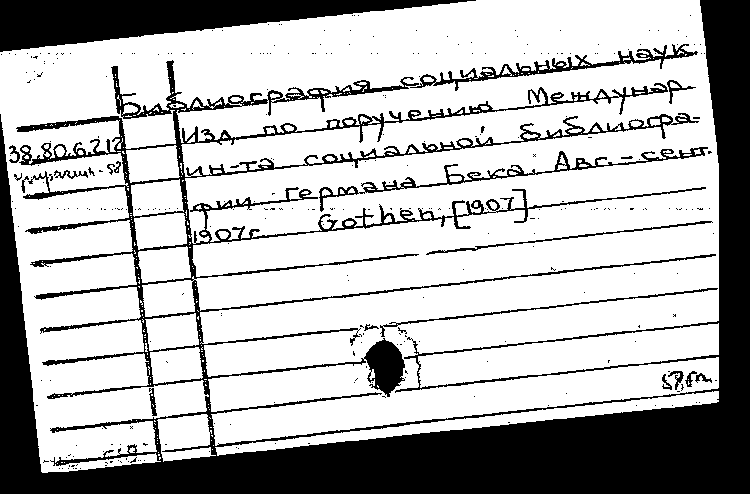 Библиография социальных наук.
Изд. по поручению Междунар.
38.80.6.212
ин-та социальной библиогра-
фии Германа Бека. Авг.-сент.
1907г. Gothen, [1907].